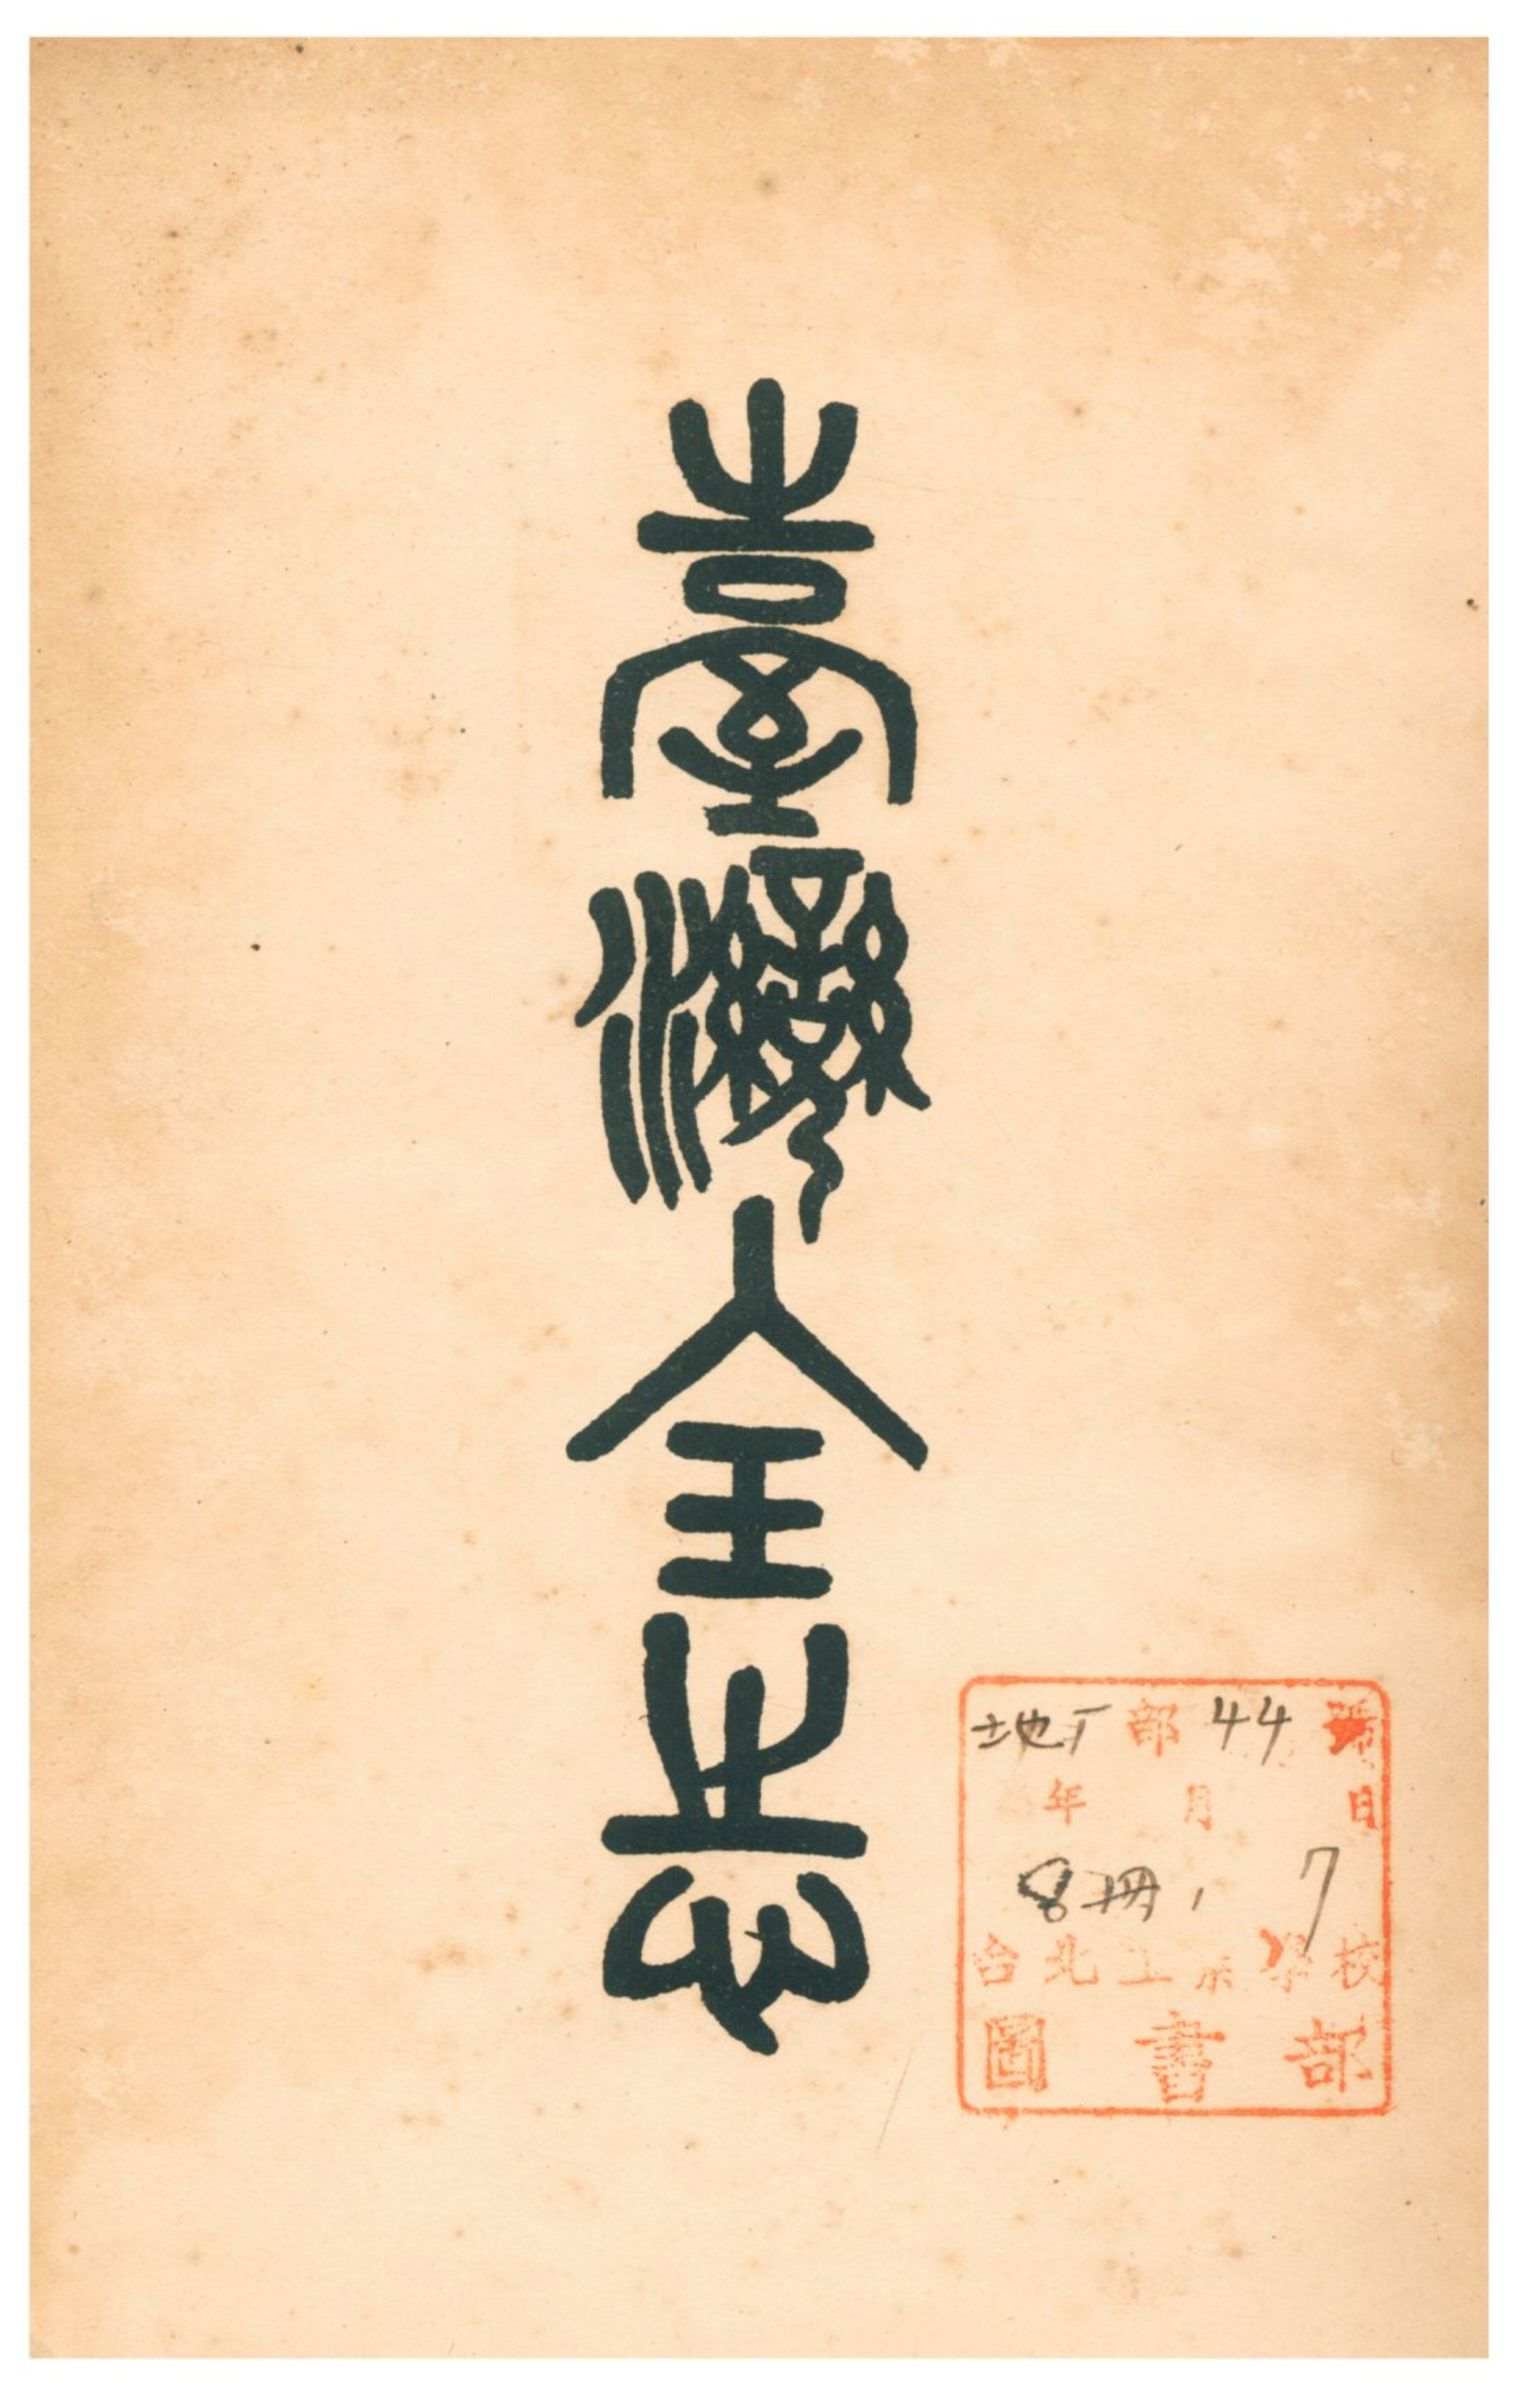 臺灣全志
地丁部44號
年月日
8冊, 7
台北工業學校
圖書部